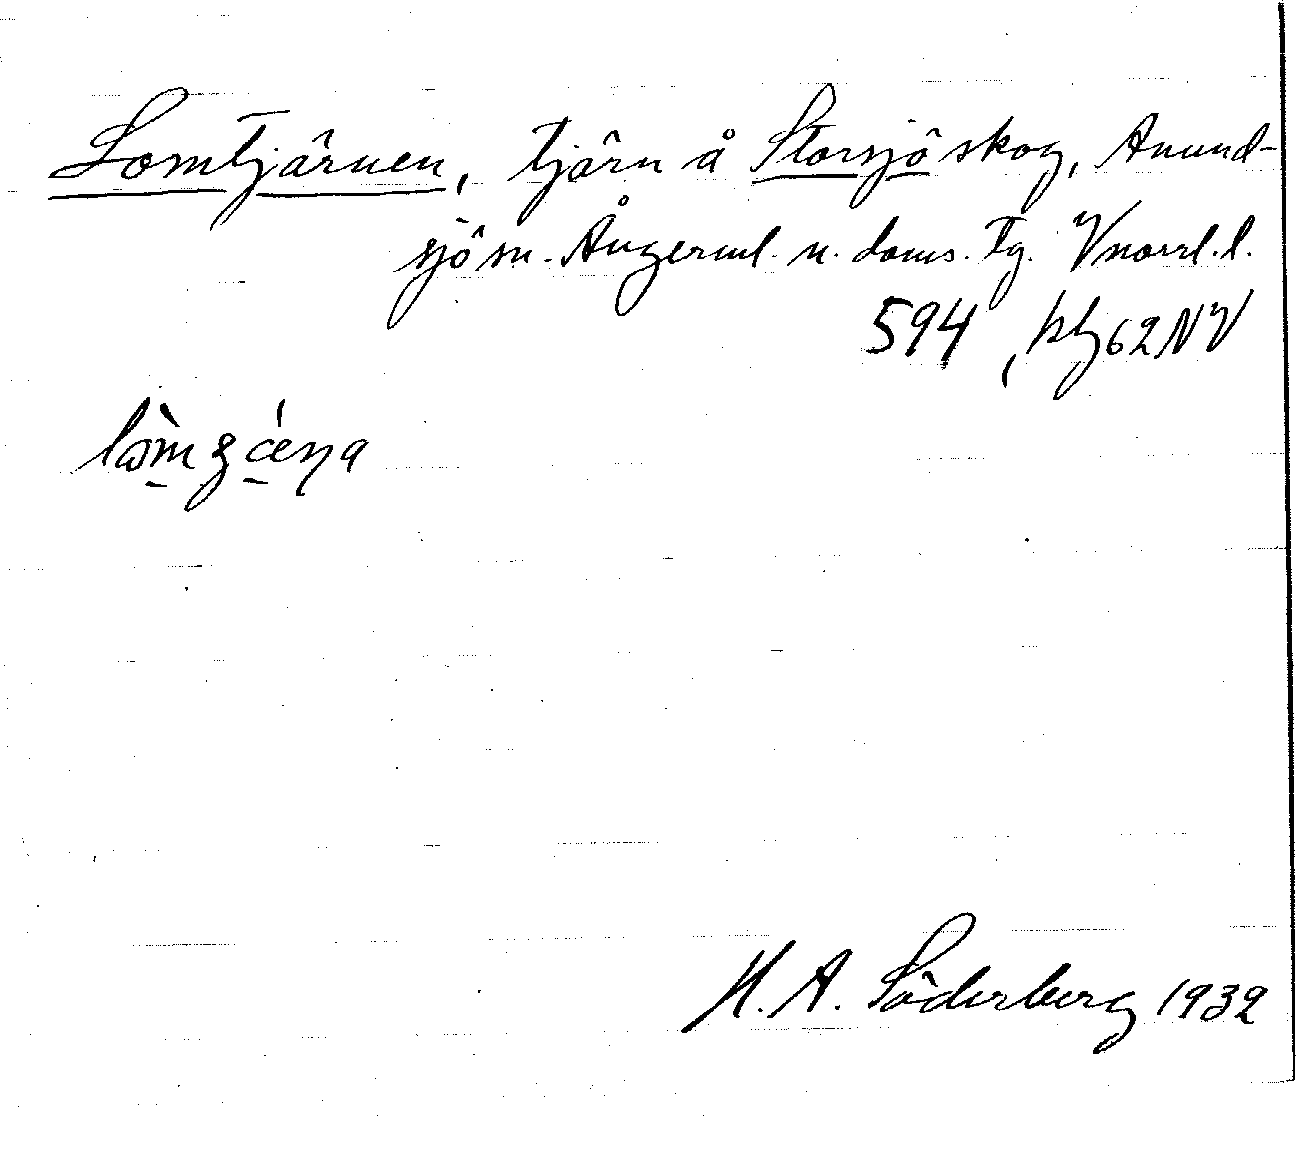 Lomtjärnen, tjärn å Storsjö skog, Anund-
sjö sn. Ångerml. n. doms. Tg. Vnorrl. l.
594, kbl 62 NV
H. A. Söderberg 1932